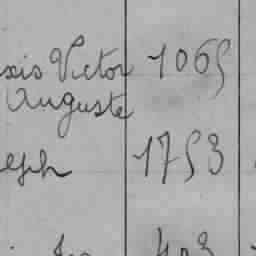 xis Victor 1065
Auguste
eph 1753
403